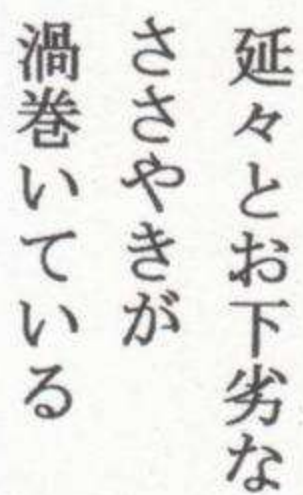 延々とお下劣な
ささやきが
渦巻いている